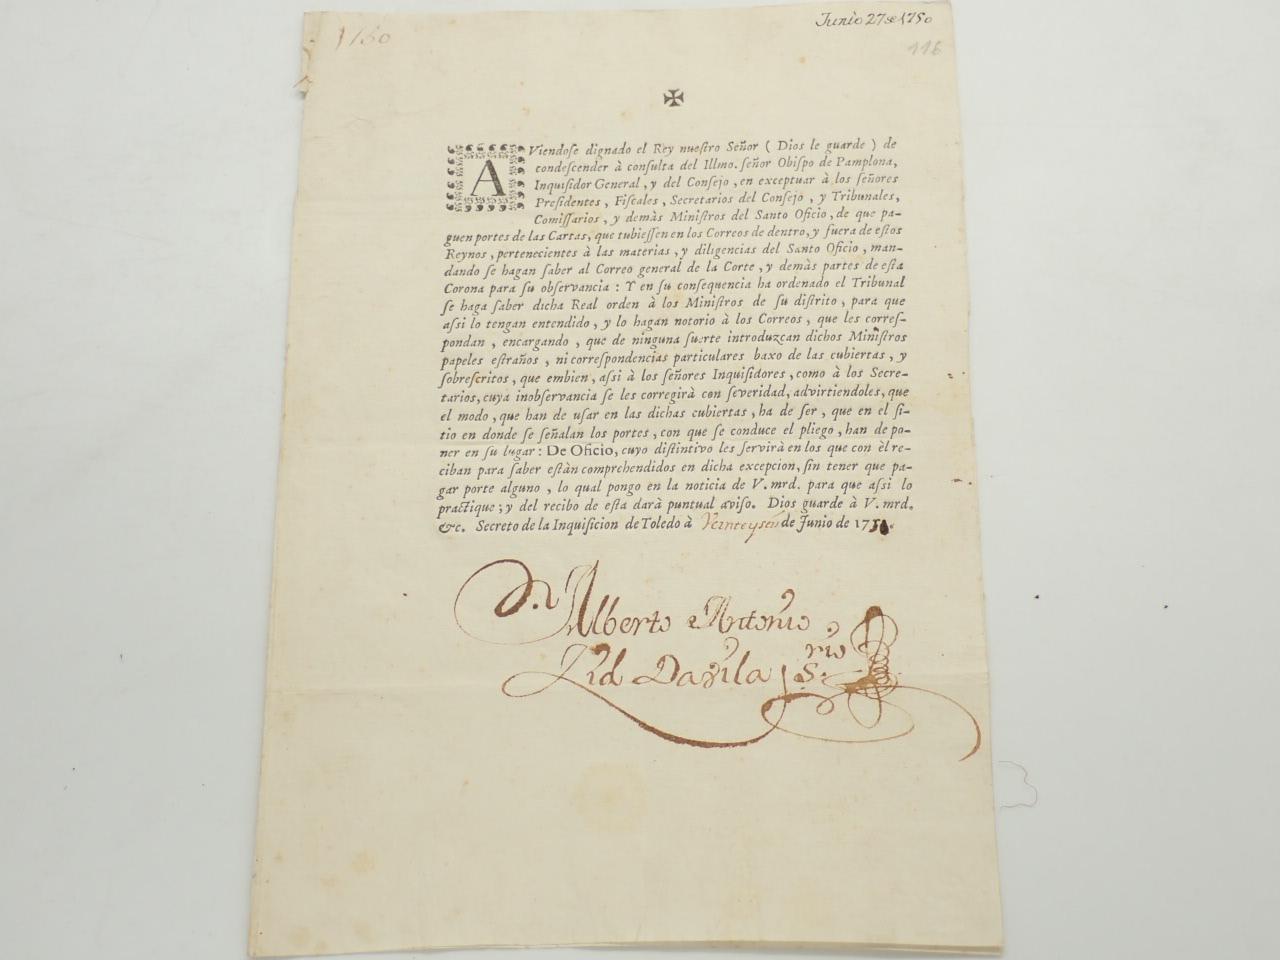 1750
Junio 27 de 1750
116
✠
AViendose dignado el Rey nuestro Señor ( Dios le guarde ) de
condescender à consulta del Illmo. señor Obispo de Pamplona,
Inquisidor General, y del Consejo, en exceptuar à los señores
Presidentes, Fiscales, Secretarios del Consejo, y Tribunales,
Comissarios, y demàs Ministros del Santo Oficio, de que pa-
guen portes de las Cartas, que tubiessen en los Correos de dentro, y fuera de estos
Reynos, pertenecientes à las materias, y diligencias del Santo Oficio, man-
dando se hagan saber al Correo general de la Corte, y demàs partes de esta
Corona para su observancia : Y en su consequencia ha ordenado el Tribunal
se haga saber dicha Real orden à los Ministros de su distrito, para que
assi lo tengan entendido, y lo hagan notorio à los Correos, que les corres-
pondan, encargando, que de ninguna suerte introduzcan dichos Ministros
papeles estraños, ni correspondencias particulares baxo de las cubiertas, y
sobrescritos, que embien, assi à los señores Inquisidores, como à los Secre-
tarios, cuya inobservancia se les corregirà con severidad, advirtiendoles, que
el modo, que han de usar en las dichas cubiertas, ha de ser, que en el si-
tio en donde se señalan los portes, con que se conduce el pliego, han de po-
ner en su lugar: De Oficio, cuyo distintivo les servirà en los que con èl re-
ciban para saber estàn comprehendidos en dicha excepcion, sin tener que pa-
gar porte alguno, lo qual pongo en la noticia de V. mrd. para que assi lo
practique; y del recibo de esta darà puntual aviso. Dios guarde à V. mrd.
&c. Secreto de la Inquisicion de Toledo à Veinte y seis de Junio de 175
D.n Alberto Antonio
Zid Davila S.rio